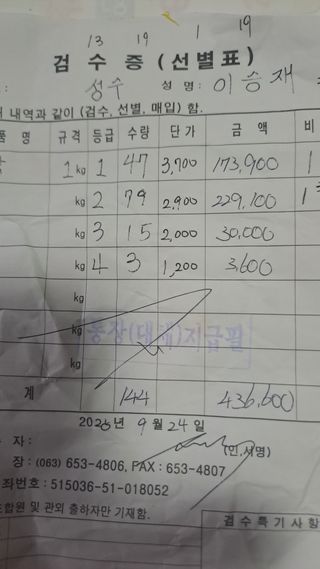 13 19 1 19
검 수 증 (선별표)
성수 성 명: 이승재
내역과 같이 (검수, 선별, 매입) 함.
품 명 규격 등급 수량 단가 금 액 비
1 kg 1 47 3,700 173,900 1
kg 2 79 2,900 229,100 1
kg 3 15 2,000 30,000
kg 4 3 1,200 3,600
kg
통장(대체)지급필
kg
kg
계 144 436,600
2025년 9월 24일
자: (인, 서명)
장: (063) 653-4806, FAX : 653-4807
좌번호: 515036-51-018052
조합원 및 관외 출하자만 기재함.
검수특기사항